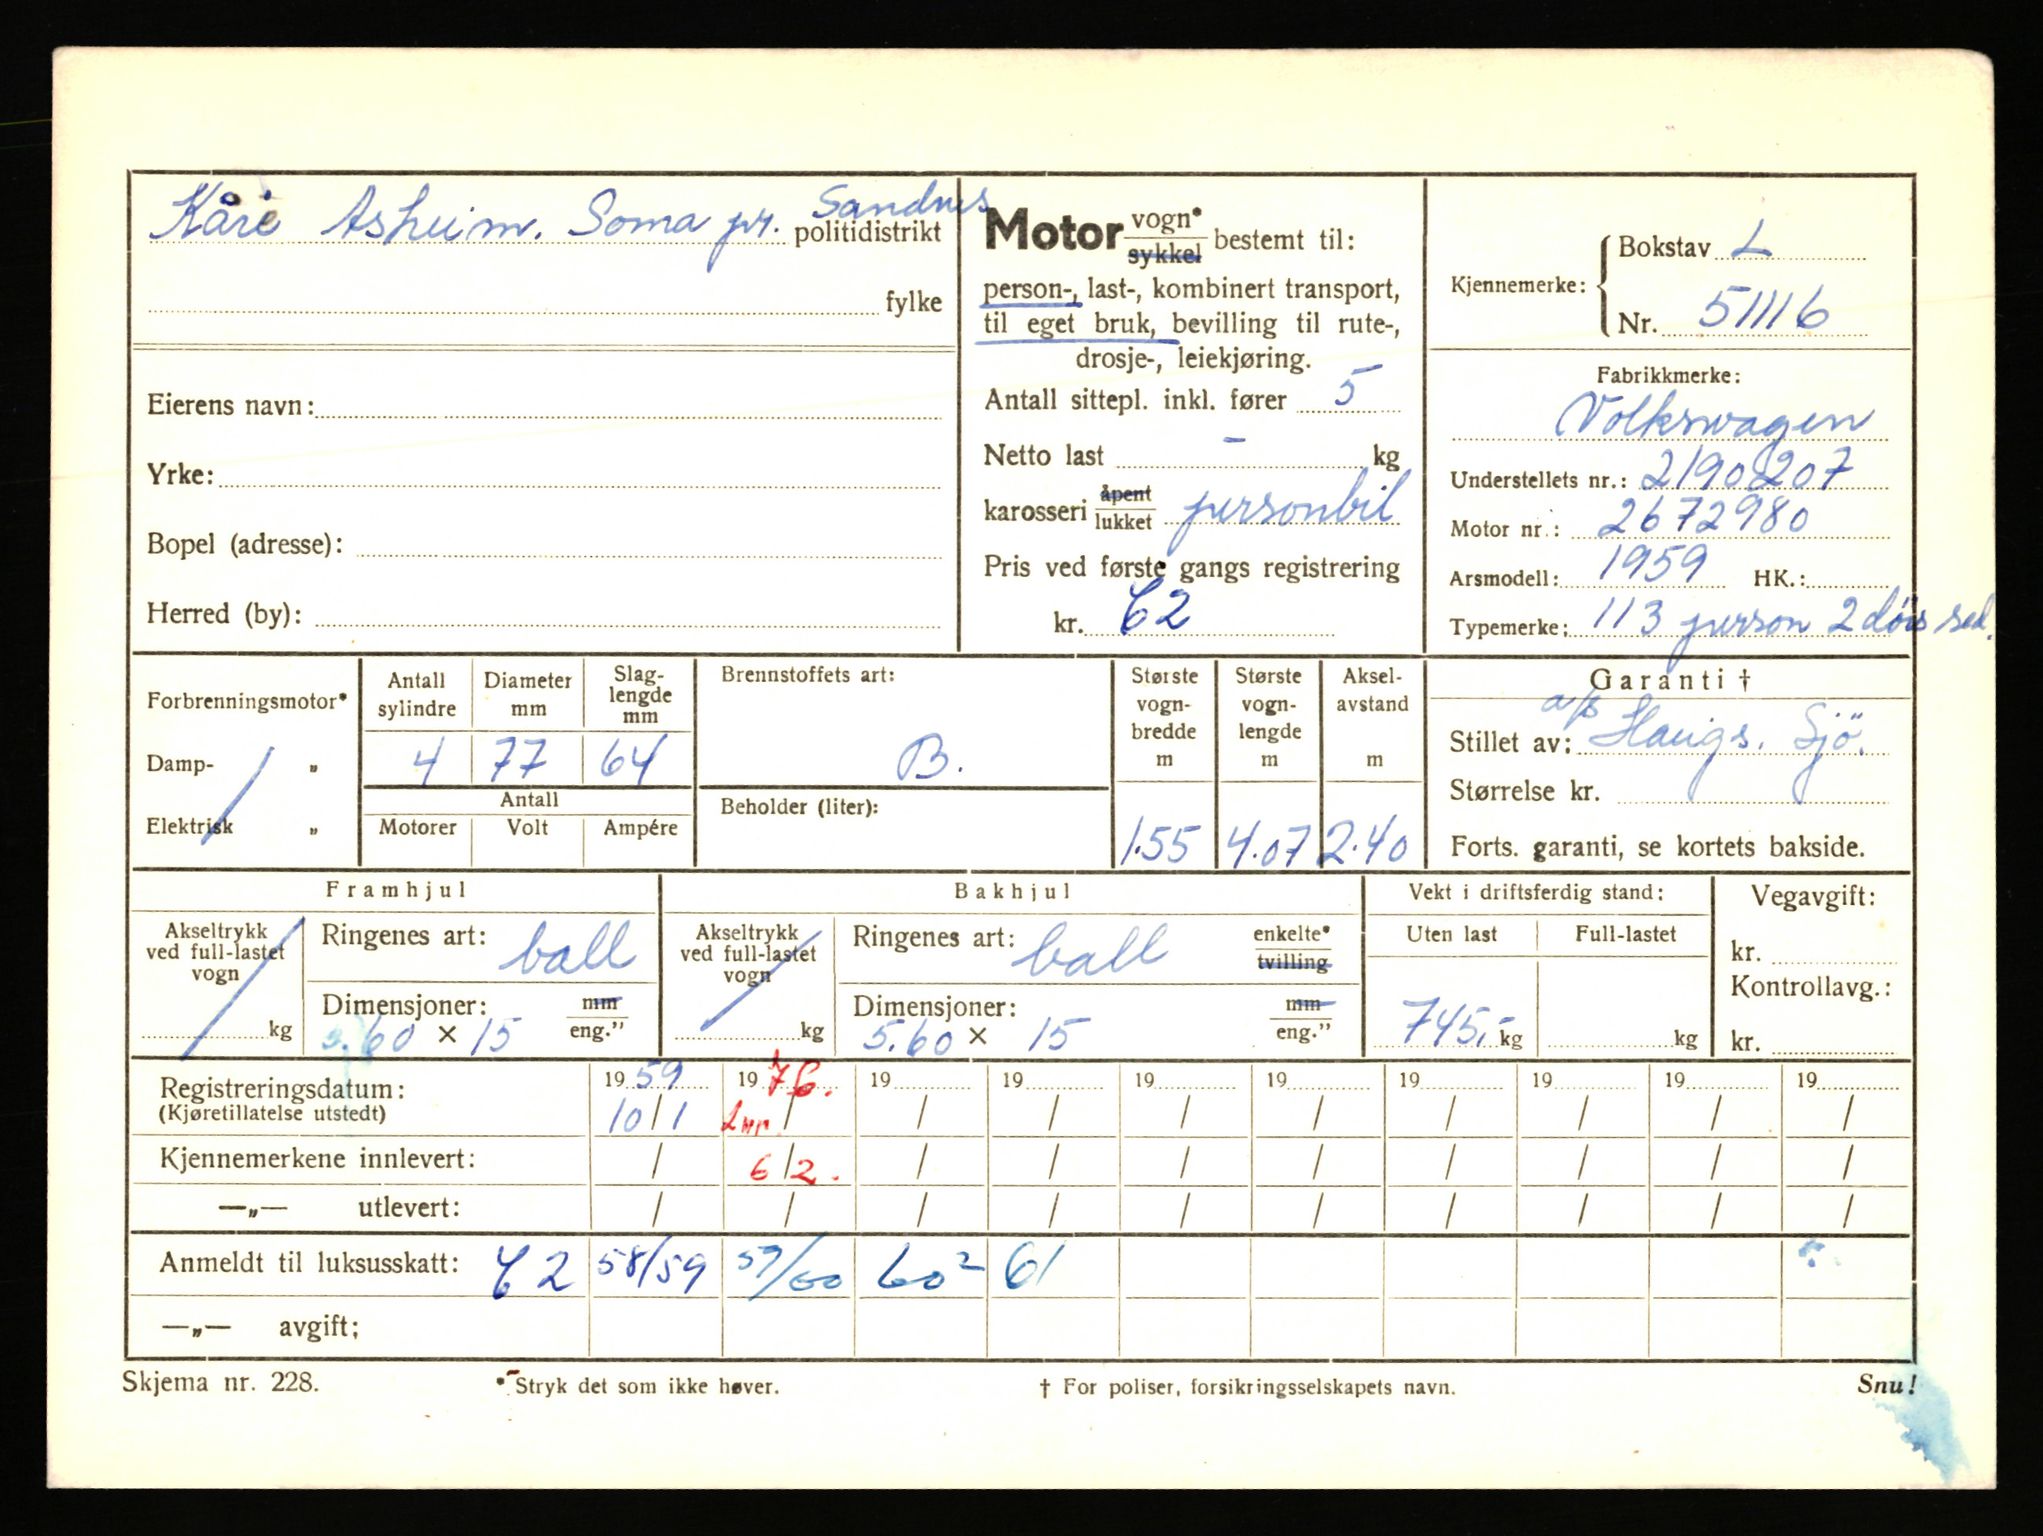 Kåre Asheim. Soma pr. Sandnes
politidistrikt
fylke
Eierens navn:
Yrke:
Bopel (adresse):
Herred (by):
Motor vogn* sykkel bestemt til:
person-, last-, kombinert transport,
til eget bruk, bevilling til rute-,
drosje-, leiekjøring.
Antall sittepl. inkl. fører 5
Netto last - kg
karosseri åpent lukket personbil
Pris ved første gangs registrering
kr. C2
Kjennemerke: Bokstav L
Nr. 51116
Fabrikkmerke:
Volkswagen
Understellets nr.: 2190207
Motor nr.: 2672980
Arsmodell: 1959 HK.:
Typemerke: 113 person 2 dörs sed.
Forbrenningsmotor*
Damp- „
Elektrisk „
Antall sylindre
Diameter mm
Slag-lengde mm
4 77 64
Antall
Motorer Volt Ampére
Brennstoffets art:
B.
Beholder (liter):
Største vogn-bredde m
1.55
Største vogn-lengde m
4.07
Aksel-avstand m
2.40
Garanti †
Stillet av: a/s Haugs. Sjö.
Størrelse kr.
Forts. garanti, se kortets bakside.
Framhjul
Akseltrykk ved full-lastet vogn
kg
Ringenes art: ball
Dimensjoner: mm
5.60 × 15 eng."
Bakhjul
Akseltrykk ved full-lastet vogn
kg
Ringenes art: ball enkelte* tvilling
Dimensjoner: mm
5.60 × 15 eng."
Vekt i driftsferdig stand:
Uten last Full-lastet
745,- kg kg
Vegavgift:
kr.
Kontrollavg.:
kr.
Registreringsdatum: 19 59 19 76. 19 19 19 19 19 19 19 19
(Kjøretillatelse utstedt) 10/1 / / / / / / / / /
Kjennemerkene innlevert: / 6/2. / / / / / / / /
—„— utlevert: / / / / / / / / / /
Anmeldt til luksusskatt: C2 58/59 59/60 60² 61
—„— avgift;
Skjema nr. 228. * Stryk det som ikke høver. † For poliser, forsikringsselskapets navn. Snu!